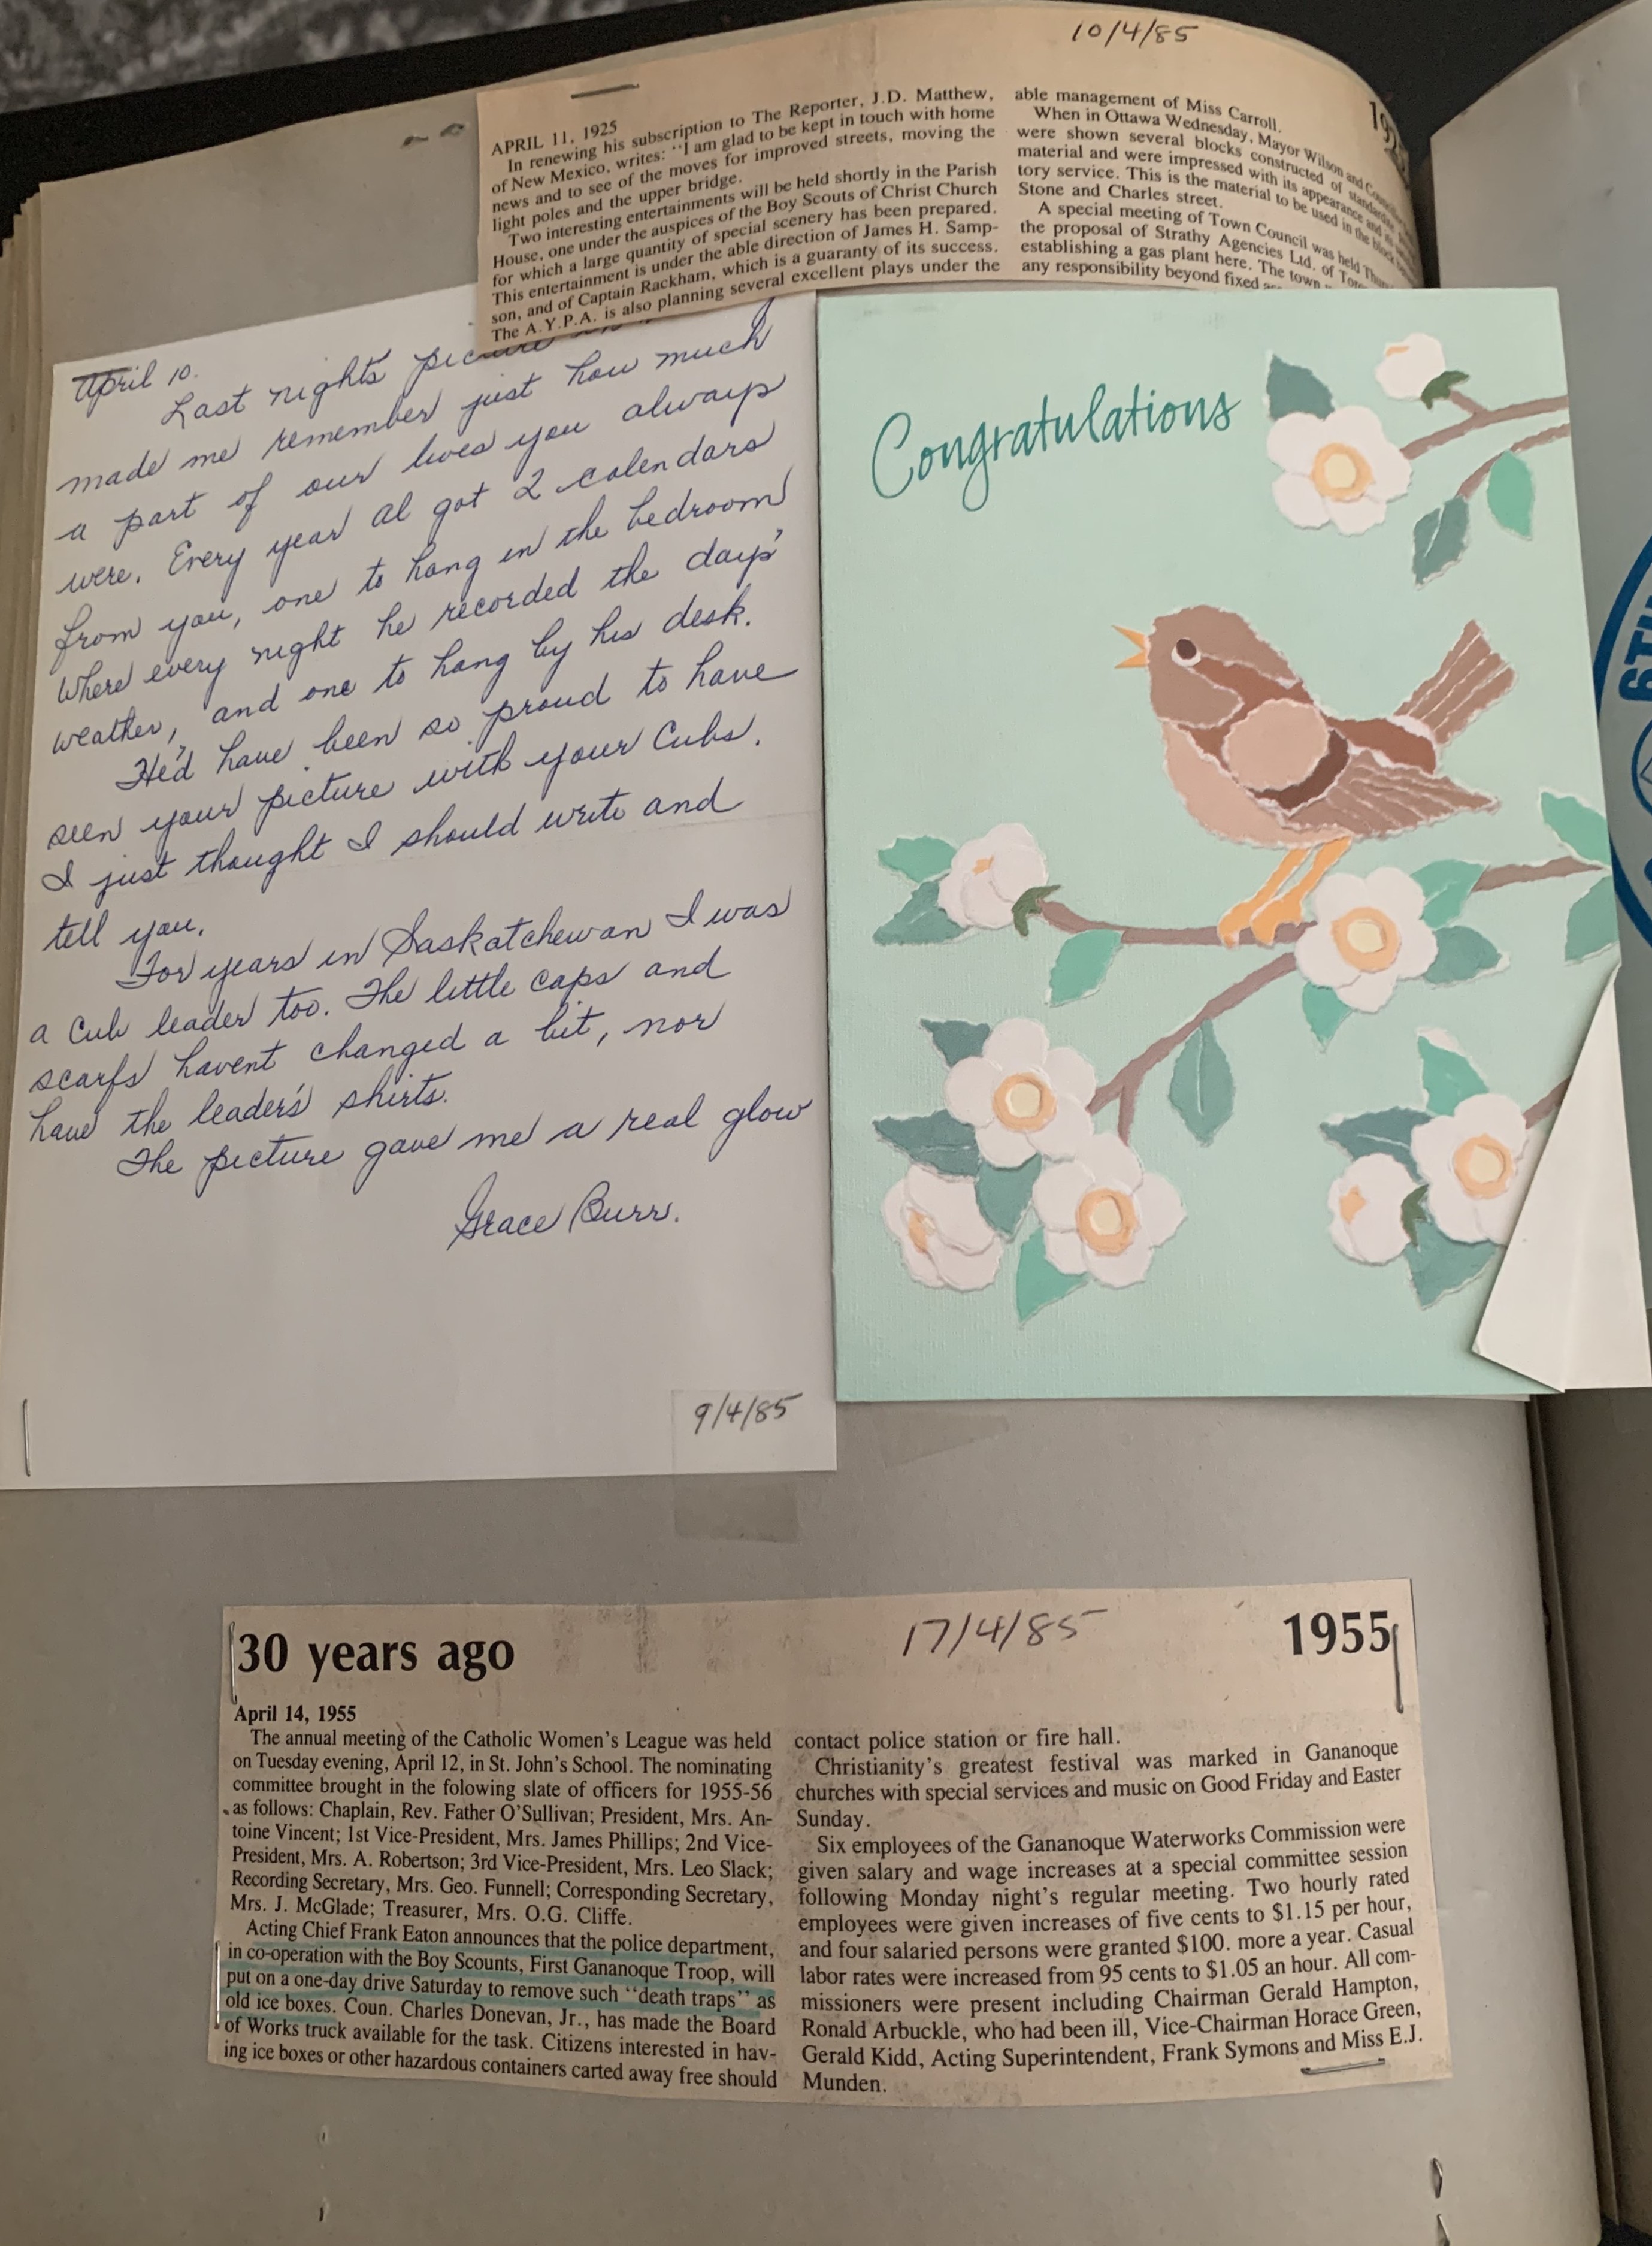 10/4/85
APRIL 11, 1925
In renewing his subscription to The Reporter, J.D. Matthew,
of New Mexico, writes: "I am glad to be kept in touch with home
news and to see of the moves for improved streets, moving the
light poles and the upper bridge.
Two interesting entertainments will be held shortly in the Parish
House, one under the auspices of the Boy Scouts of Christ Church
for which a large quantity of special scenery has been prepared.
This entertainment is under the able direction of James H. Samp-
son, and of Captain Rackham, which is a guaranty of its success.
The A.Y.P.A. is also planning several excellent plays under the
able management of Miss Carroll.
When in Ottawa Wednesday, Mayor Wilson and
were shown several blocks constructed of
material and were impressed with its appearance and
tory service. This is the material to be used in the block
Stone and Charles street.
A special meeting of Town Council was held
the proposal of Strathy Agencies Ltd. of
establishing a gas plant here. The town
any responsibility beyond fixed
April 10.
Last nights picture
made me remember just how much
a part of our lives you always
were. Every year Al got 2 calendars
from you, one to hang in the bedroom
where every night he recorded the days'
weather, and one to hang by his desk.
He'd have been so proud to have
seen your picture with your Cubs.
I just thought I should write and
tell you.
For years in Saskatchewan I was
a Cub leader too. The little caps and
scarfs havent changed a bit, nor
have the leader's shirts.
The picture gave me a real glow
Grace Burr.
9/4/85
Congratulations
30 years ago
17/4/85
1955
April 14, 1955
The annual meeting of the Catholic Women's League was held
on Tuesday evening, April 12, in St. John's School. The nominating
committee brought in the folowing slate of officers for 1955-56
as follows: Chaplain, Rev. Father O'Sullivan; President, Mrs. An-
toine Vincent; 1st Vice-President, Mrs. James Phillips; 2nd Vice-
President, Mrs. A. Robertson; 3rd Vice-President, Mrs. Leo Slack;
Recording Secretary, Mrs. Geo. Funnell; Corresponding Secretary,
Mrs. J. McGlade; Treasurer, Mrs. O.G. Cliffe.
Acting Chief Frank Eaton announces that the police department,
in co-operation with the Boy Scounts, First Gananoque Troop, will
put on a one-day drive Saturday to remove such "death traps" as
old ice boxes. Coun. Charles Donevan, Jr., has made the Board
of Works truck available for the task. Citizens interested in hav-
ing ice boxes or other hazardous containers carted away free should
contact police station or fire hall.
Christianity's greatest festival was marked in Gananoque
churches with special services and music on Good Friday and Easter
Sunday.
Six employees of the Gananoque Waterworks Commission were
given salary and wage increases at a special committee session
following Monday night's regular meeting. Two hourly rated
employees were given increases of five cents to $1.15 per hour,
and four salaried persons were granted $100. more a year. Casual
labor rates were increased from 95 cents to $1.05 an hour. All com-
missioners were present including Chairman Gerald Hampton,
Ronald Arbuckle, who had been ill, Vice-Chairman Horace Green,
Gerald Kidd, Acting Superintendent, Frank Symons and Miss E.J.
Munden.